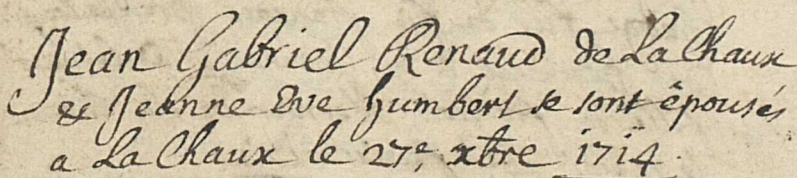 Jean Gabriel Renaud de La Chaux
& Jeanne Eve Humbert se sont épousés
a La Chaux le 27e, xbre 1714.